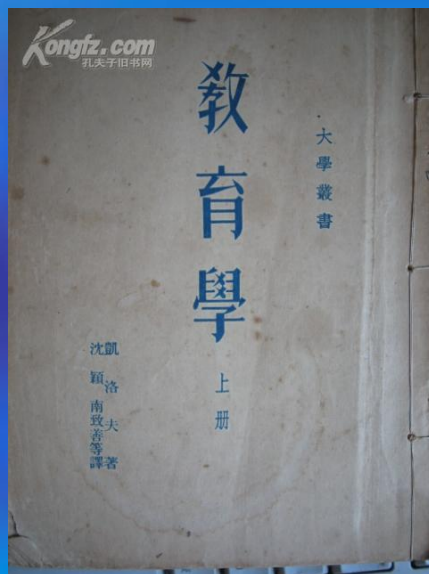 Kongfz.com
孔夫子旧书网
大學叢書
教育學
上册
凱洛夫著
沈穎 南致善等譯